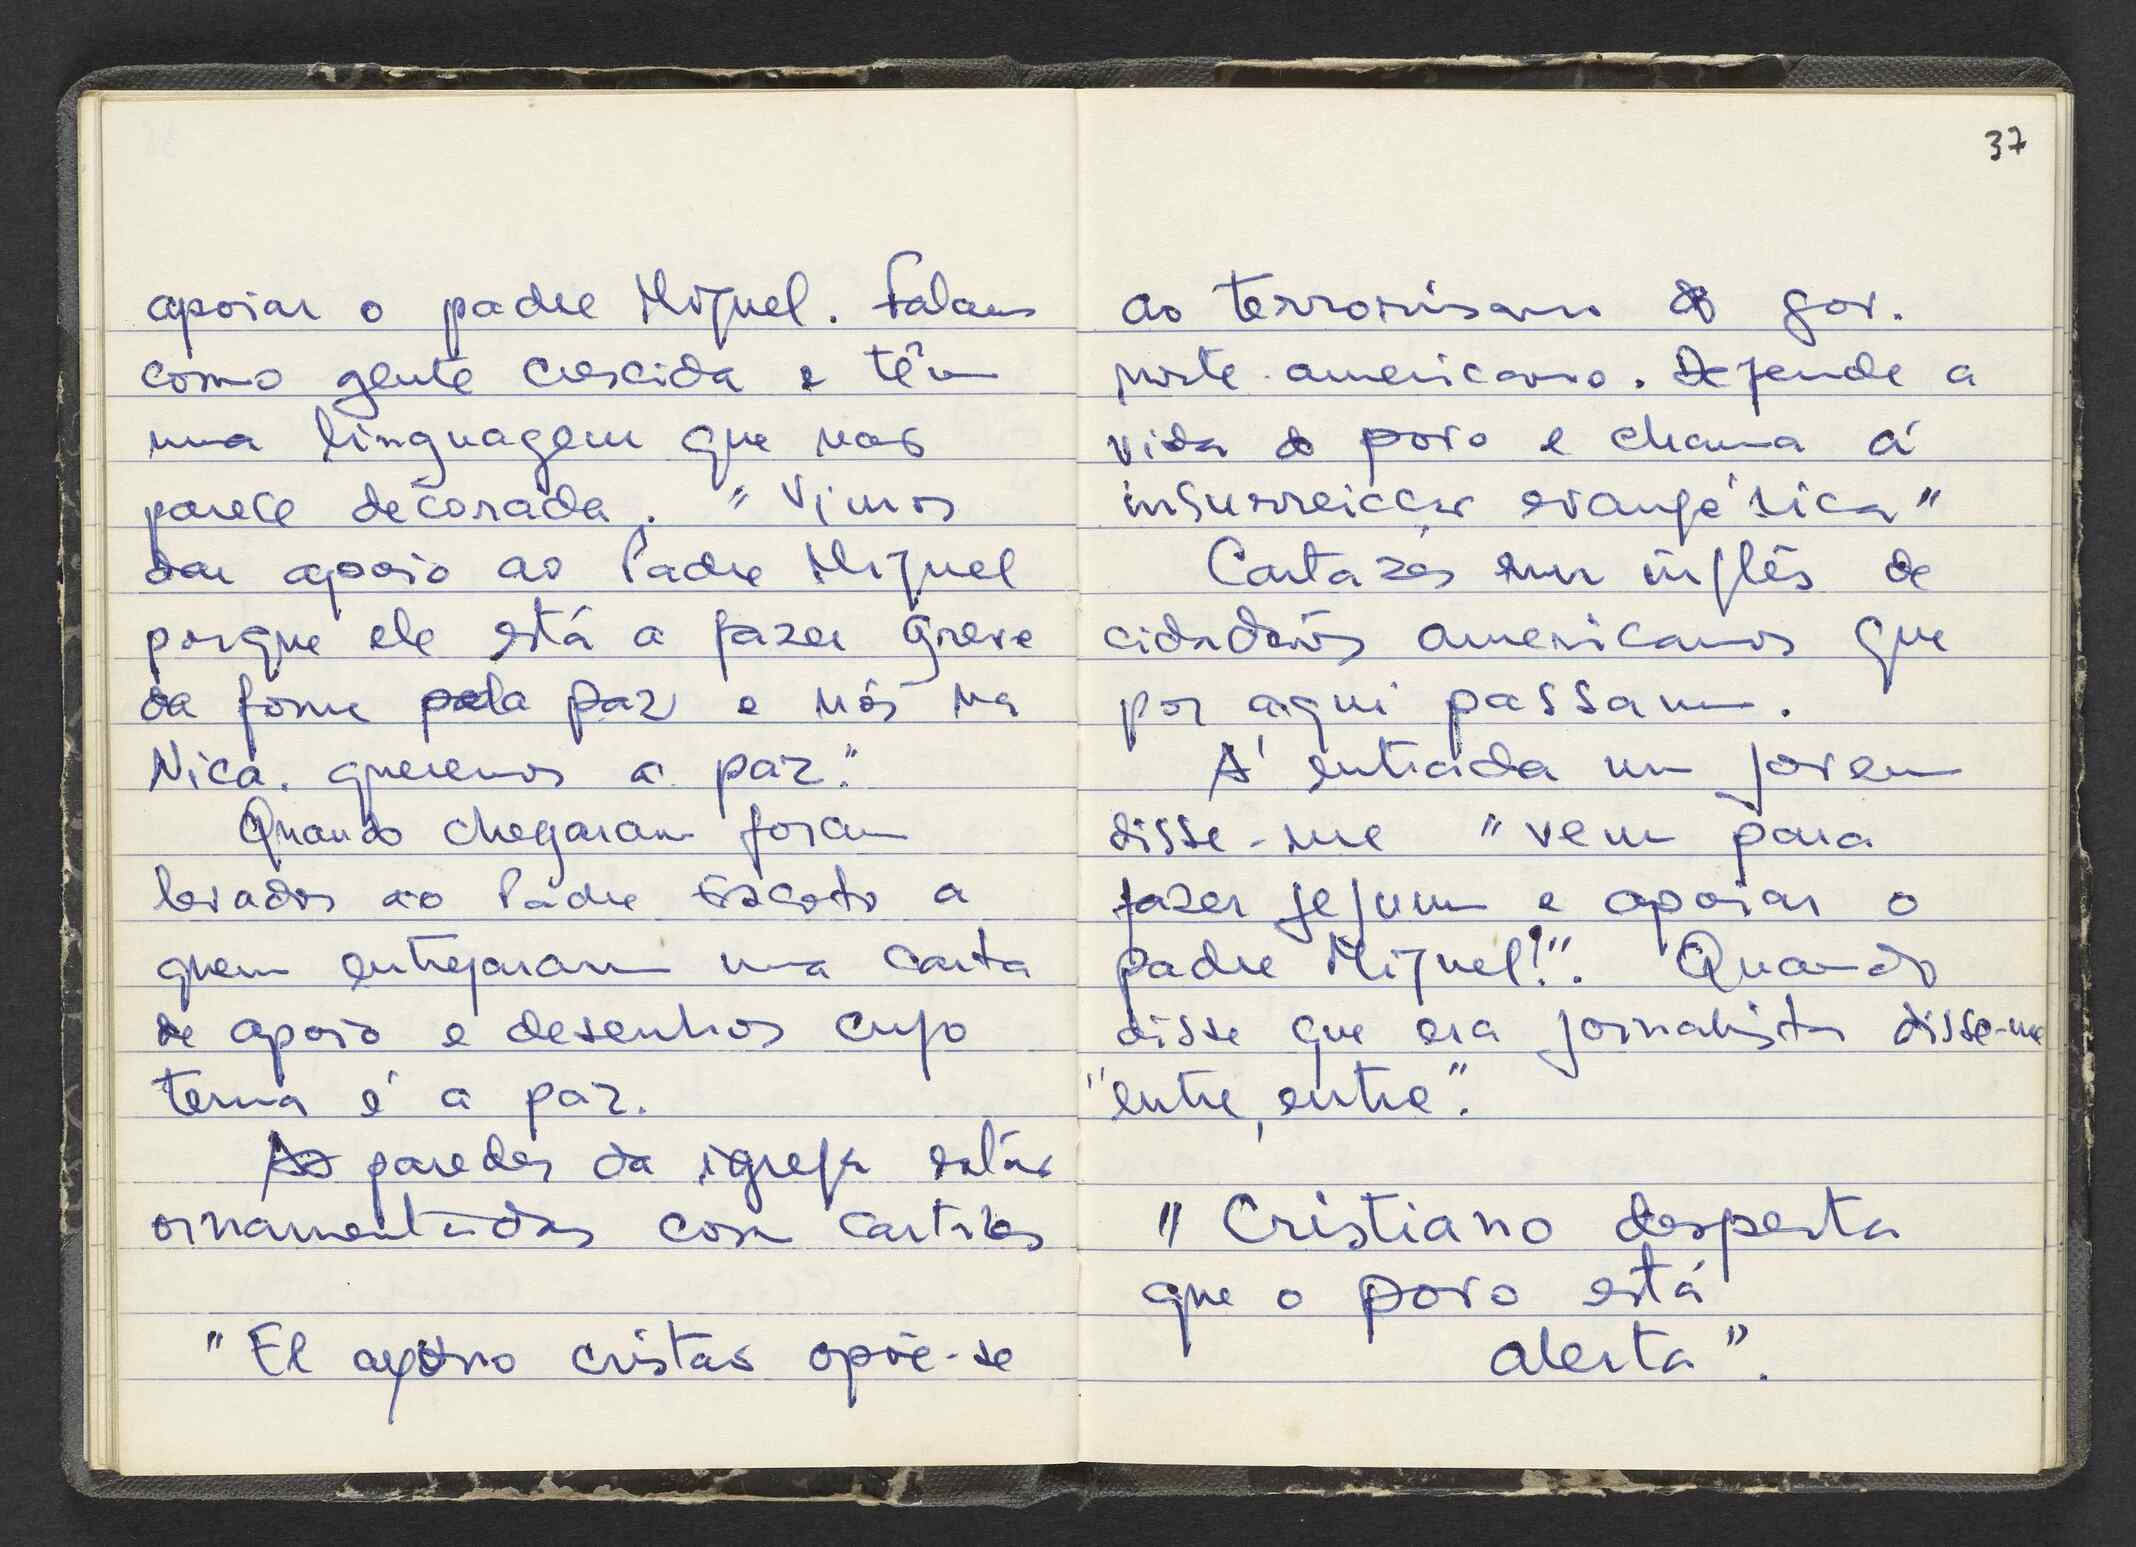 apoiar o padre Miguel. Falam
como gente crescida e têm
uma linguagem que nos
parece decorada. "Vimos
dar apoio ao Padre Miguel
porque ele está a fazer greve
da fome pela paz e nós na
Nica. queremos a paz."
Quando chegaram foram
levados ao Padre Escoto a
quem entregaram uma carta
de apoio e desenhos cujo
tema é a paz.
As paredes da igreja estão
ornamentadas com cartazes
"El ayuno cristão opõe-se
37
ao terrorismo do gov.
norte-americano. Defende a
vida do povo e chama á
insurreiccão evangélica"
Cartazes em inglês de
cidadãos americanos que
por aqui passam.
Á entrada um jovem
disse-me "vem para
fazer jejum e apoiar o
padre Miguel!". Quando
disse que era jornalista disse-me
"entre, entre".
"Cristiano desperta
que o povo está
alerta".